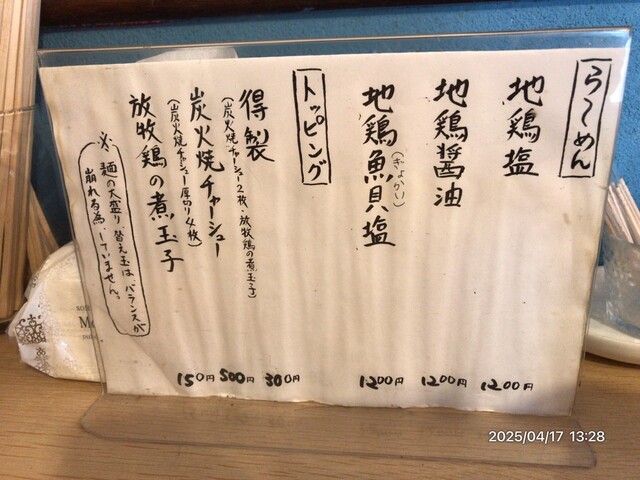 らーめん
地鶏塩
1200円
地鶏醤油
1200円
地鶏魚貝塩
(ぎょかい)
1200円
トッピング
得製
(炭火焼チャーシュー2枚・放牧鶏の煮玉子)
300円
炭火焼チャーシュー
(炭火焼チャーシュー厚切り4枚)
500円
放牧鶏の煮玉子
150円
※麺の大盛り、替え玉は、バランスが
崩れる為していません。
2025/04/17 13:28